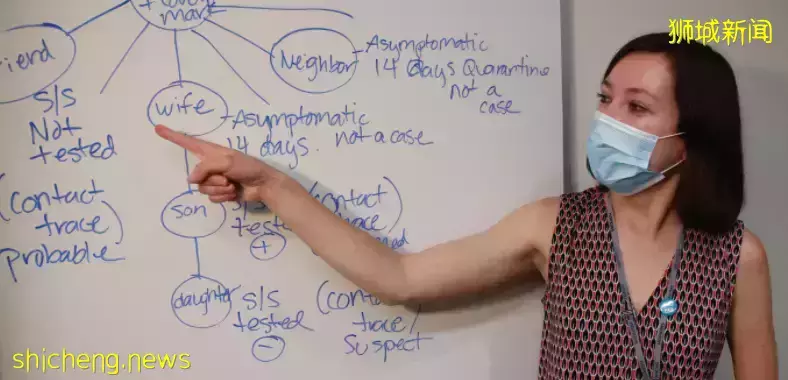 mark
狮城新闻
riend
Neighbor
Asymptomatic
14 days Quarantine
not a
case
S/S
Not
tested
(contact
trace)
probable
wife
Asymptomatic
14 days. not a case
son
S/S
tested
+
(contact
daughter
S/S
tested
-
trace/
Suspect
shicheng.news